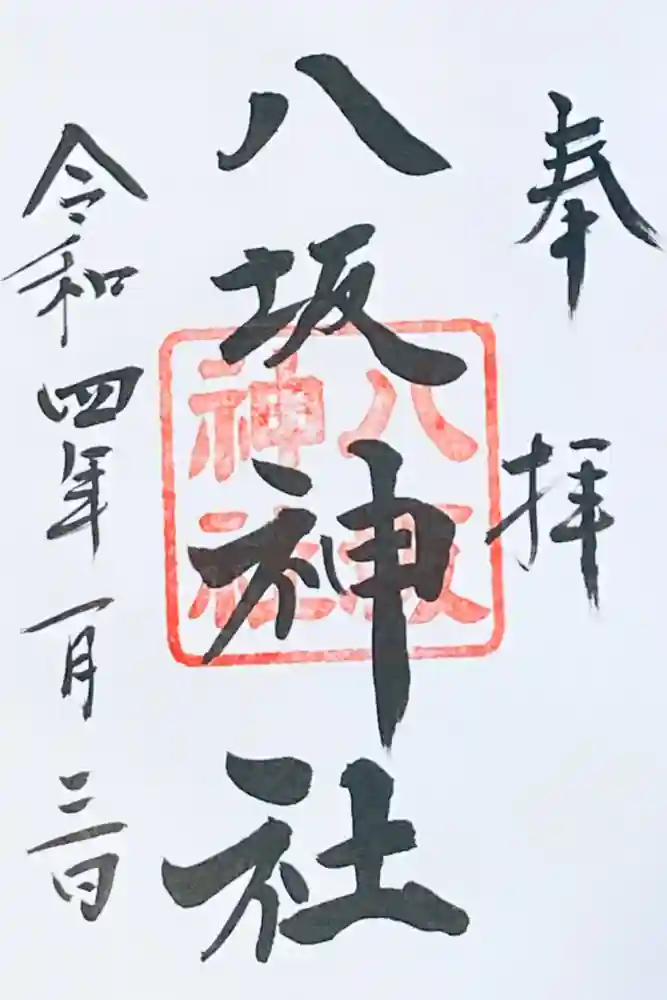 奉拝
八坂神社
八坂
神社
令和四年一月三日